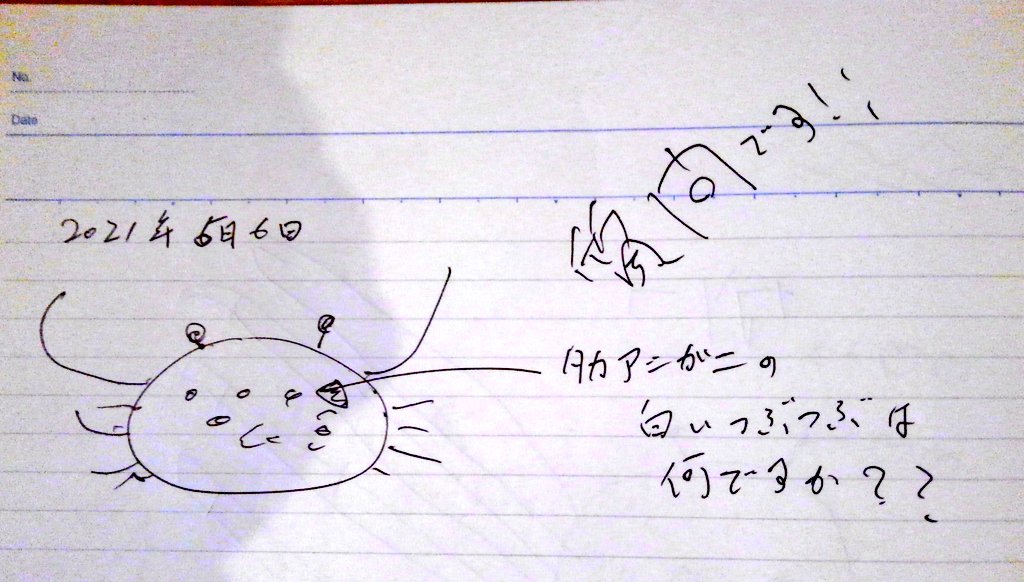 No.
Date
です!!
2021年5月6日
タカアシがニの
白いつぶつぶは
何ですか??